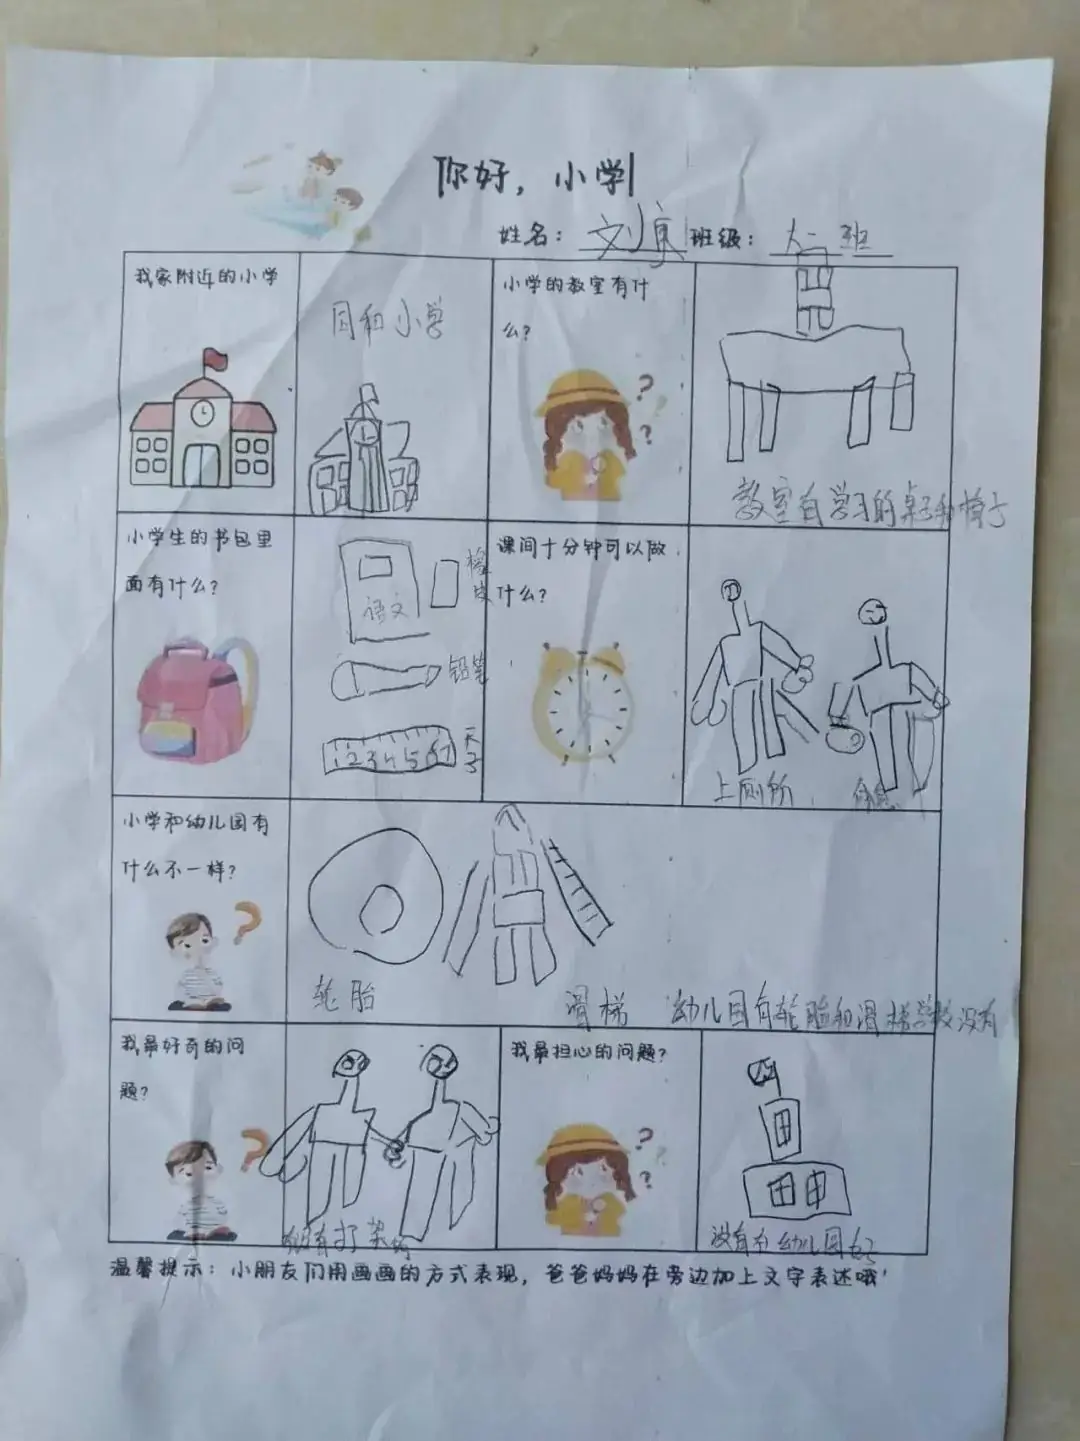 你好，小学
姓名： 班级：大一班
我家附近的小学
同和小学
小学的教室有什
么？
教室有学习的桌子和椅子
小学生的书包里
面有什么？
语文
橡皮
铅笔
1 2 3 4 5 6 7
尺子
课间十分钟可以做
什么？
上厕所
休息
小学和幼儿园有
什么不一样？
轮胎
滑梯
幼儿园有轮胎和滑梯学校没有
我最好奇的问
题？
有没有打架的
我最担心的问题？
没有幼儿园好
温馨提示：小朋友们用画画的方式表现，爸爸妈妈在旁边加上文字表述哦！